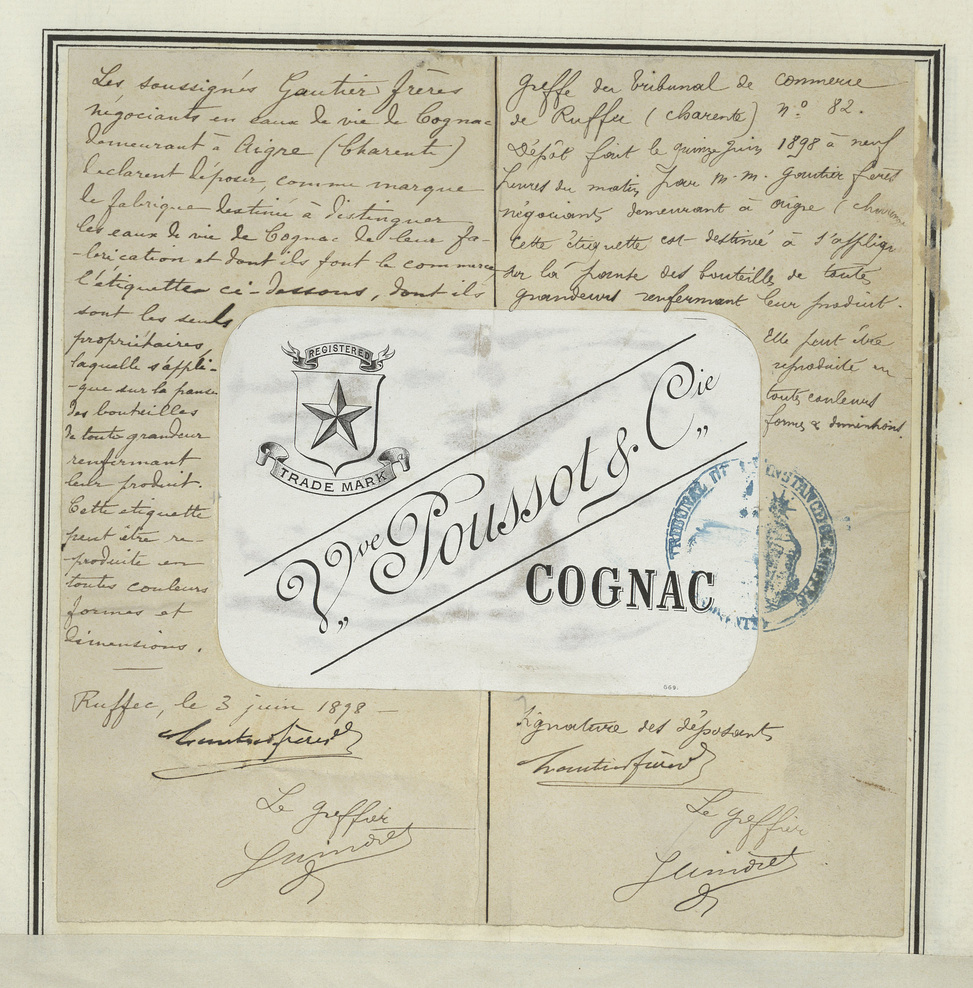 Les soussignés Gautier frères
négociants en eaux de vie de Cognac
demeurant à Aigre (Charente)
déclarent déposer, comme marque
de fabrique destinée à distinguer
les eaux de vie de Cognac de leur fa-
-brication et dont ils font le commerce
l'étiquette ci-dessous, dont ils
sont les seuls
propriétaires,
laquelle s'appli-
-que sur la panse
des bouteilles
de toute grandeur
renfermant
leur produit.
Cette étiquette
peut être re-
-produite en
toutes couleurs
formes et
dimensions.
Ruffec, le 3 juin 1898 -
Gautier frères
Le greffier
greffe du tribunal de commerce
de Ruffec (charente) n° 82.
Dépôt fait le quinze juin 1898 à neuf
heures du matin par M.M. Gautier frères
négociants demeurant à aigre (charente
Cette étiquette est destinée à s'appliquer
sur la panse des bouteilles de toutes
grandeurs renfermant leur produit.
Elle peut être
reproduite en
toutes couleurs
formes & dimentions.
REGISTERED
TRADE MARK
Vve Poussot & Cie
COGNAC
669.
TRIBUNAL DE 1ère INSTANCE
Signature des déposants
Gautier frères
Le greffier